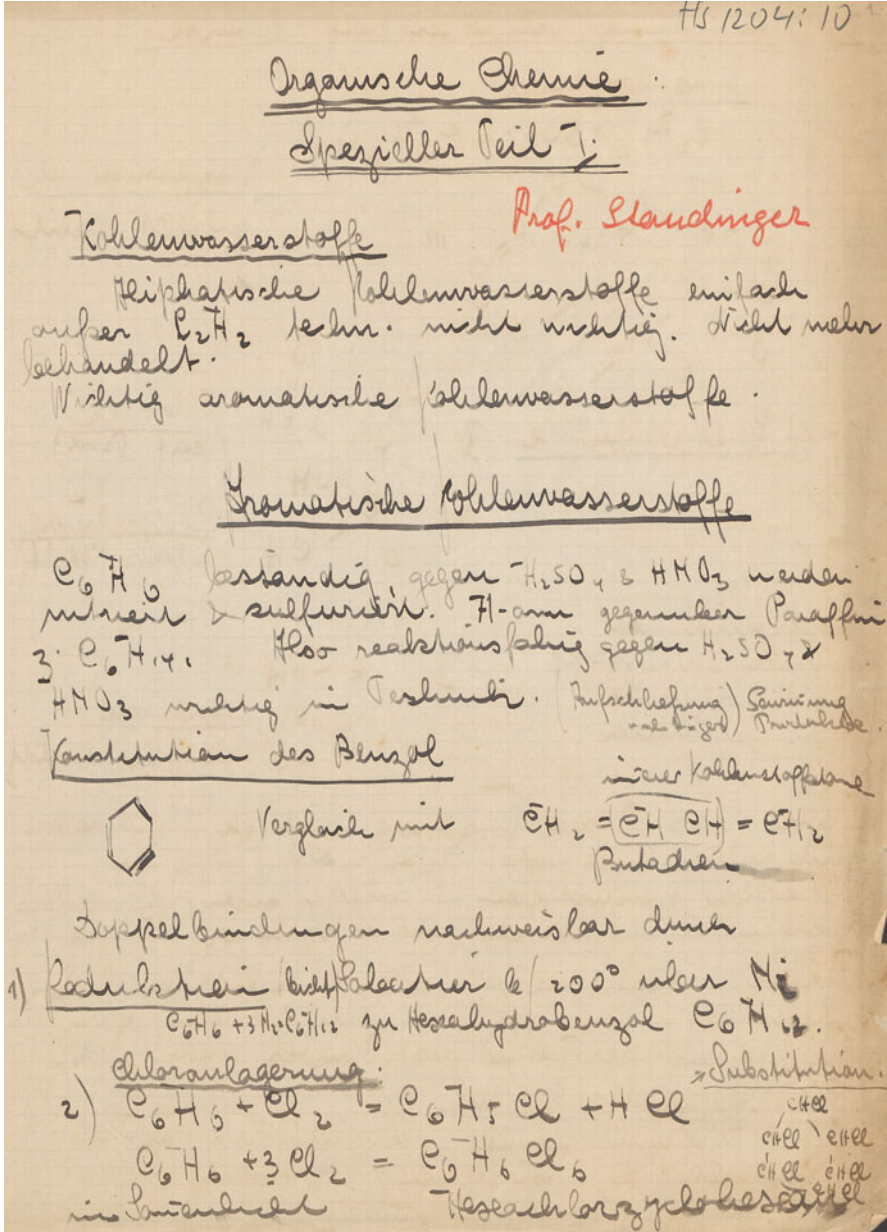 Hs 1204:10
Organische Chemie
Spezieller Teil I.
Prof. Staudinger
Kohlenwasserstoffe
Aliphatische Kohlenwasserstoffe einfach
außer C₂H₂ techn. nicht wichtig. Nicht mehr
behandelt.
Wichtig aromatische Kohlenwasserstoffe.
Aromatische Kohlenwasserstoffe
C₆H₆ beständig, gegen H₂SO₄ & HNO₃ werden
nitriert & sulfuriert. H-arm gegenüber Paraffin
C₆H₁₄. Also reaktionsfähig gegen H₂SO₄ &
HNO₃ wichtig in Technik. (Aufschließung
Konstitution des Benzol
Kohlenstoffatome
Vergleich mit CH₂ = CH CH = CH₂
Butadien
Doppelbindungen nachweisbar durch
1) Reduktion Sabatier 200° über Ni
C₆H₆ + 3H₂ = C₆H₁₂ zu Hexahydrobenzol C₆H₁₂.
Chloranlagerung: Substitution.
2) C₆H₆ + Cl₂ = C₆H₅Cl + HCl
C₆H₆ + 3Cl₂ = C₆H₆Cl₆
CHCl
CHCl CHCl
CHCl CHCl
CHCl
im Sonnenlicht Hexachlorzyclohexan